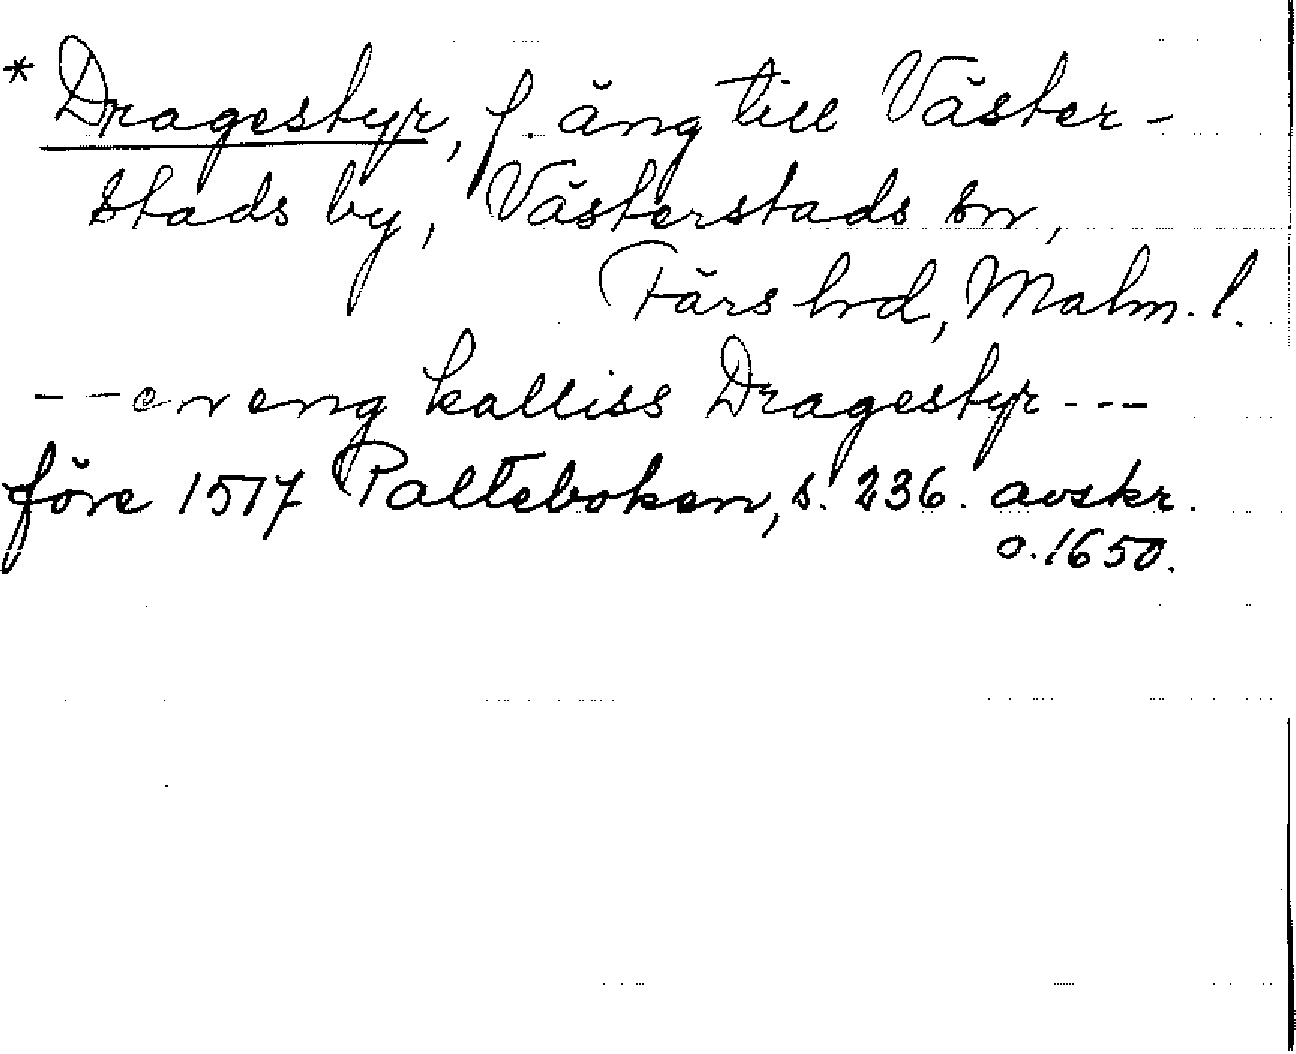 * Dragestyr, f. äng till Väster-
stads by, Västerstads sn,
Färs hrd, Malm. l.
- - en eng kalliss Dragestyr - - -
före 1517 Palteboken, s. 236. avskr.
o. 1650.